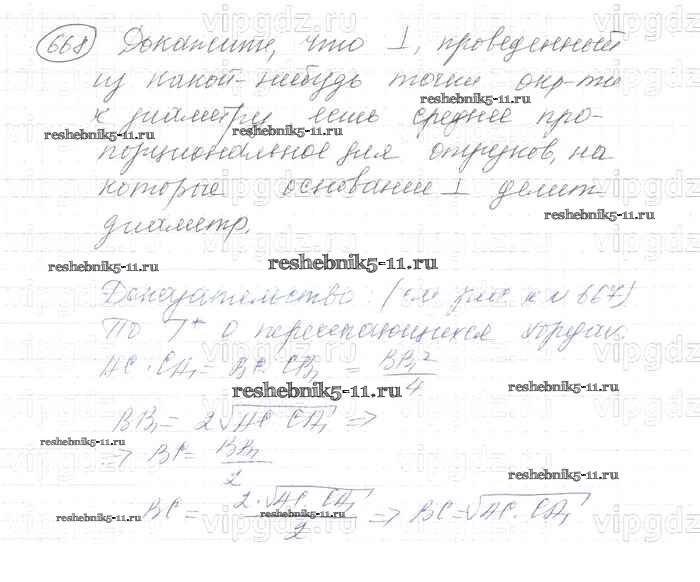 668 Докажите, что ⊥, проведенный
из какой-нибудь точки окр-ти
к диаметру, есть среднее про-
порциональное для отрезков, на
которые основание ⊥ делит
диаметр.
Доказательство: (см рис к № 667)
По Т* о пересекающихся хордах
AC · CA₁ = BC · CB₁ = BB₁²/4
BB₁ = 2√AC · CA₁ =>
=> BC = BB₁/2
BC = 2·√AC · CA₁/2 => BC = √AC · CA₁
reshebnik5-11.ru
vipgdz